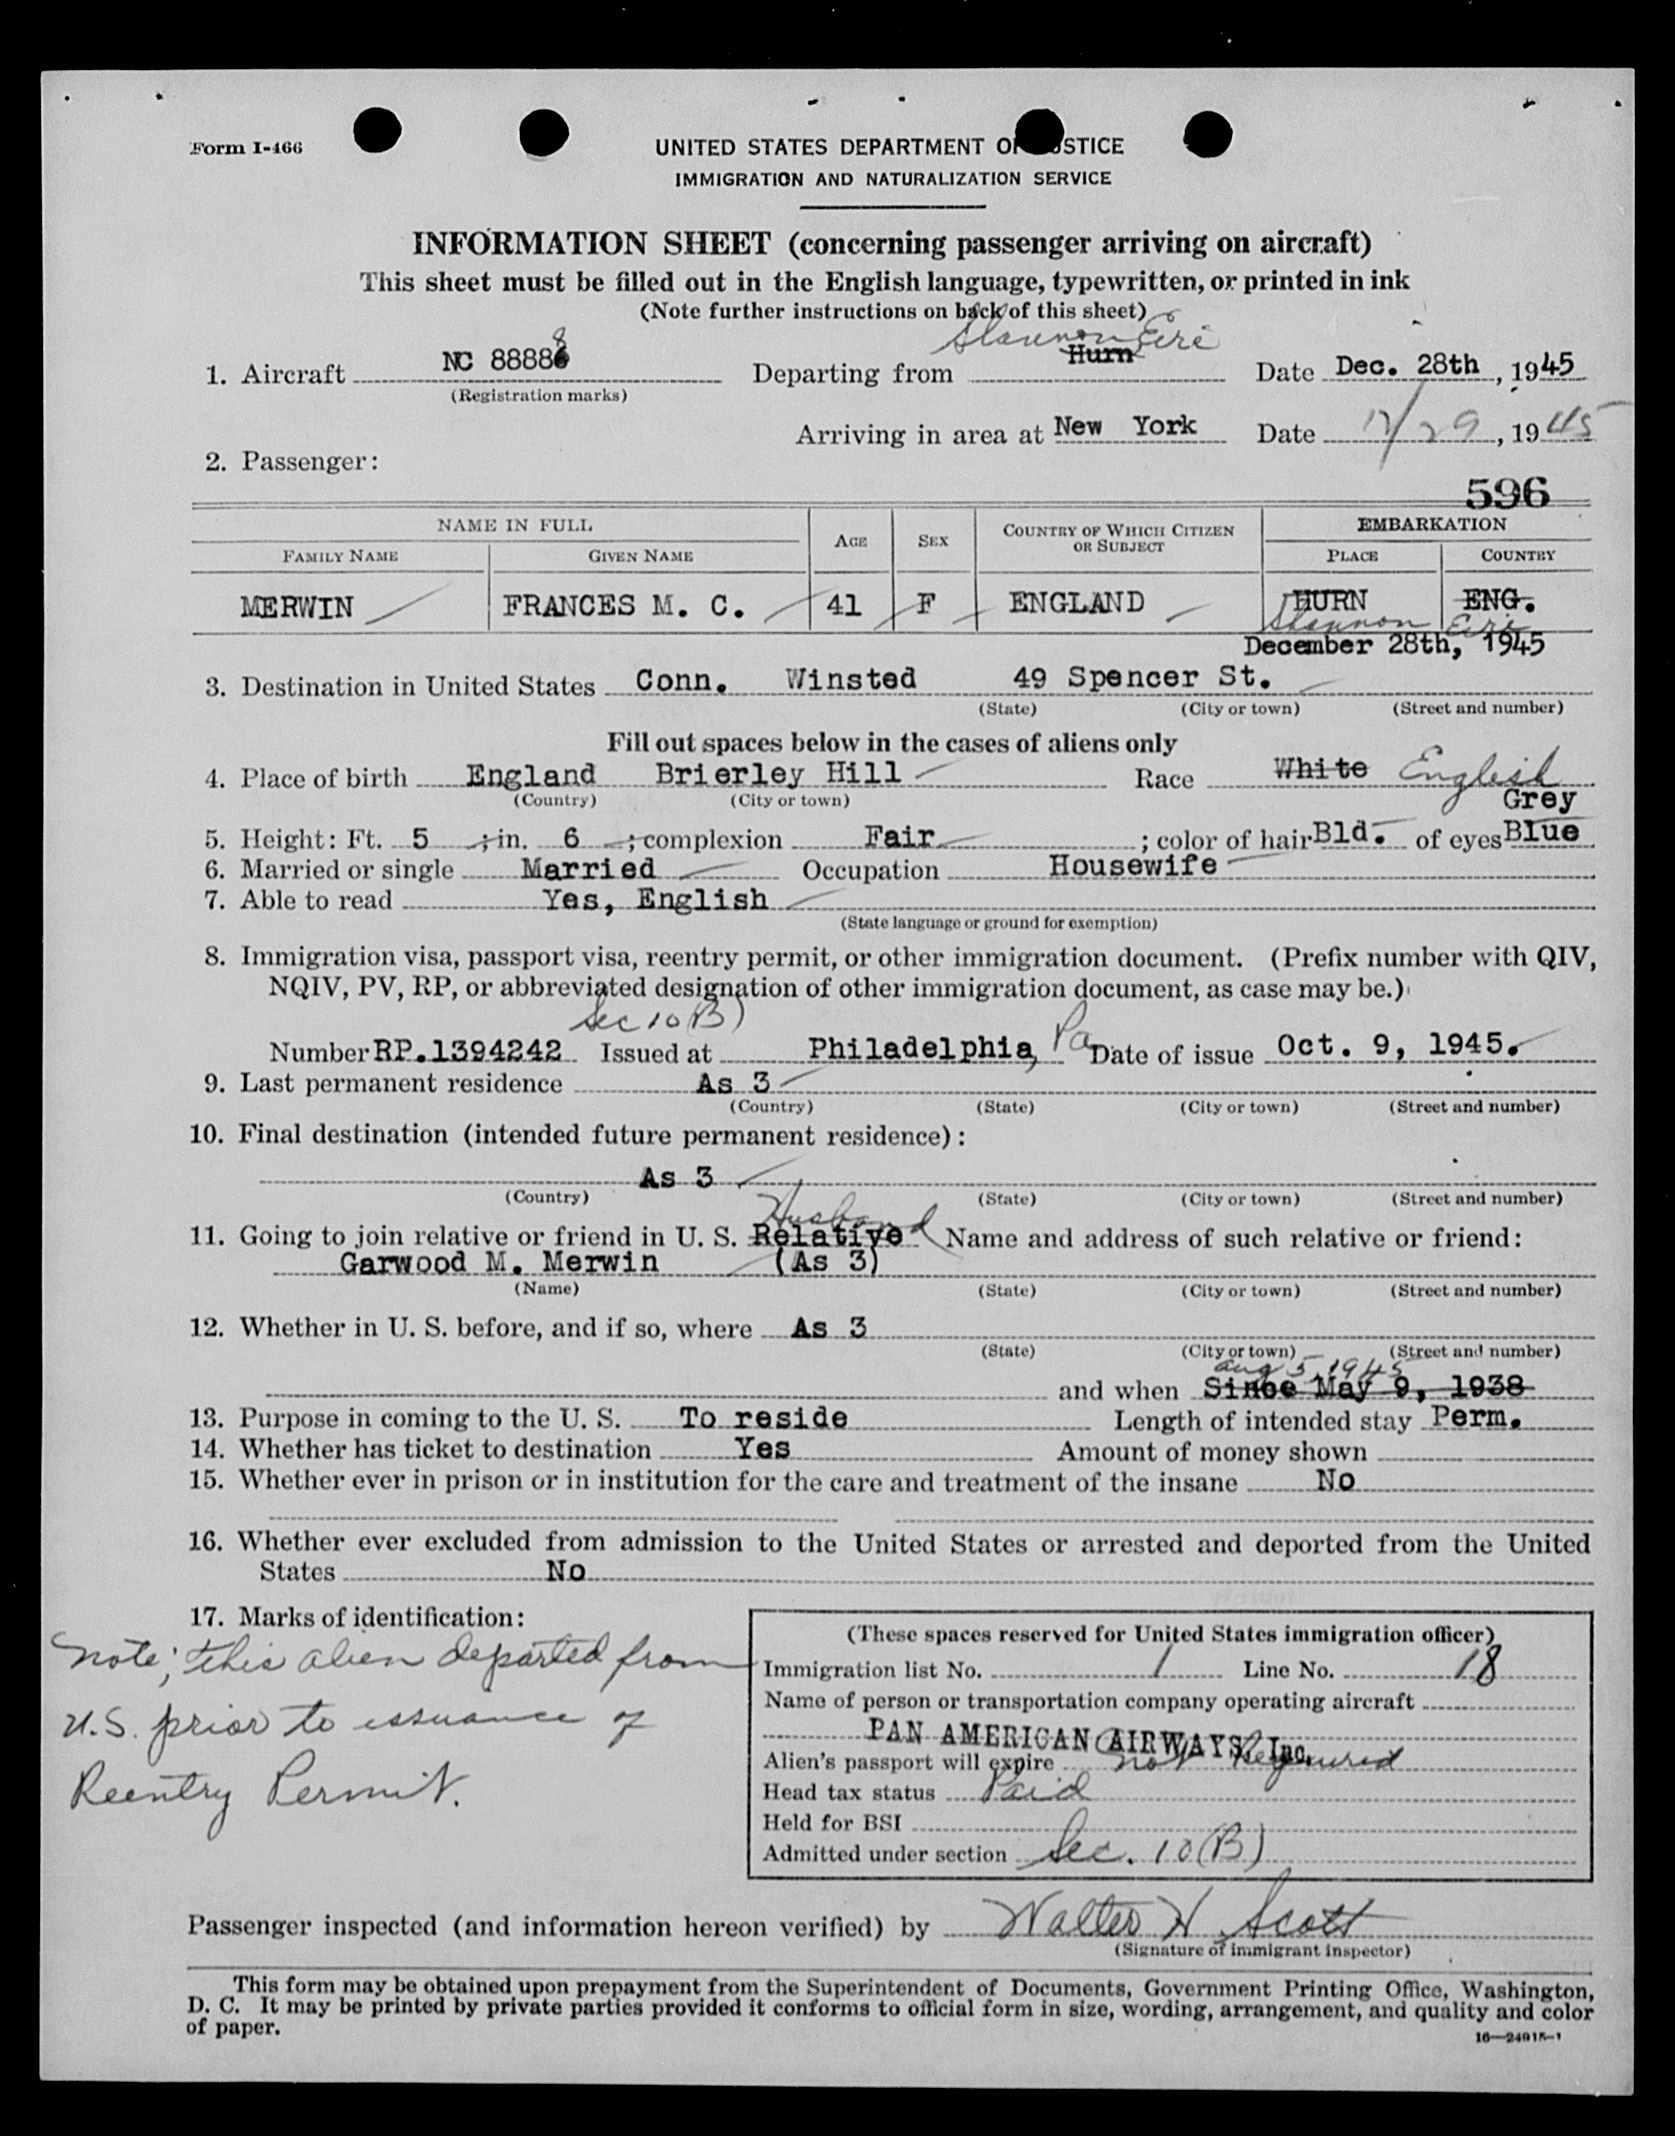 Form I-466
UNITED STATES DEPARTMENT OF JUSTICE
IMMIGRATION AND NATURALIZATION SERVICE
INFORMATION SHEET (concerning passenger arriving on aircraft)
This sheet must be filled out in the English language, typewritten, or printed in ink
(Note further instructions on back of this sheet)
Shannon Eire
1. Aircraft NC 88888 Departing from Hurn Date Dec. 28th, 1945
(Registration marks)
Arriving in area at New York Date 12/29, 1945
2. Passenger:
596
NAME IN FULL AGE SEX COUNTRY OF WHICH CITIZEN OR SUBJECT EMBARKATION
FAMILY NAME GIVEN NAME PLACE COUNTRY
MERWIN FRANCES M. C. 41 F ENGLAND HURN ENG.
Shannon Eire
December 28th, 1945
3. Destination in United States Conn. Winsted 49 Spencer St.
(State) (City or town) (Street and number)
Fill out spaces below in the cases of aliens only
4. Place of birth England Brierley Hill Race White English
(Country) (City or town)
Grey
5. Height: Ft. 5 ; in. 6 ; complexion Fair ; color of hair Bld. of eyes Blue
6. Married or single Married Occupation Housewife
7. Able to read Yes, English
(State language or ground for exemption)
8. Immigration visa, passport visa, reentry permit, or other immigration document. (Prefix number with QIV,
NQIV, PV, RP, or abbreviated designation of other immigration document, as case may be.)
Sec 10(B)
Number RP.1394242 Issued at Philadelphia, Pa Date of issue Oct. 9, 1945.
9. Last permanent residence As 3
(Country) (State) (City or town) (Street and number)
10. Final destination (intended future permanent residence):
As 3
(Country) (State) (City or town) (Street and number)
Husband
11. Going to join relative or friend in U. S. Relative Name and address of such relative or friend:
Garwood M. Merwin (As 3)
(Name) (State) (City or town) (Street and number)
12. Whether in U. S. before, and if so, where As 3
(State) (City or town) (Street and number)
Aug 5, 1945
and when Since May 9, 1938
13. Purpose in coming to the U. S. To reside Length of intended stay Perm.
14. Whether has ticket to destination Yes Amount of money shown
15. Whether ever in prison or in institution for the care and treatment of the insane No
16. Whether ever excluded from admission to the United States or arrested and deported from the United
States No
17. Marks of identification:
Note; this alien departed from
U.S. prior to issuance of
Reentry Permit.
(These spaces reserved for United States immigration officer)
Immigration list No. 1 Line No. 18
Name of person or transportation company operating aircraft
PAN AMERICAN AIRWAYS, Inc.
Alien's passport will expire not Required
Head tax status Paid
Held for BSI
Admitted under section Sec. 10(B)
Passenger inspected (and information hereon verified) by Walter H Scott
(Signature of immigrant inspector)
This form may be obtained upon prepayment from the Superintendent of Documents, Government Printing Office, Washington,
D. C. It may be printed by private parties provided it conforms to official form in size, wording, arrangement, and quality and color
of paper.
16—24915-1